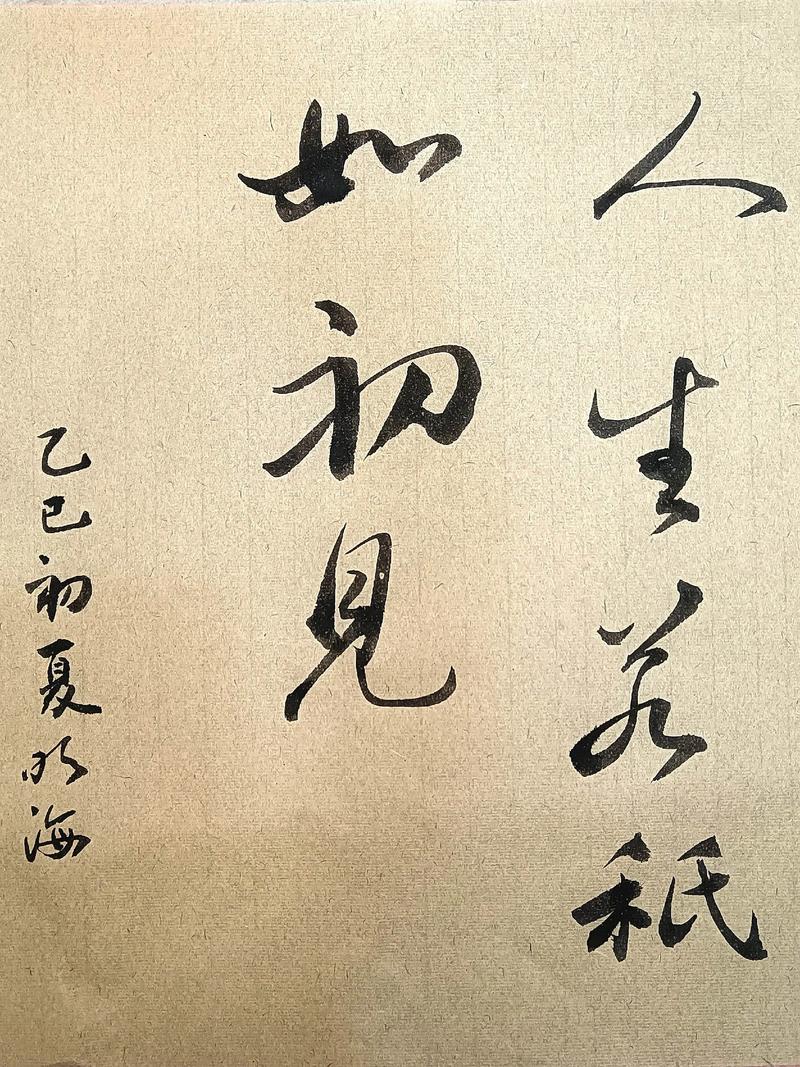 人生若秖
如初見
乙巳初夏海